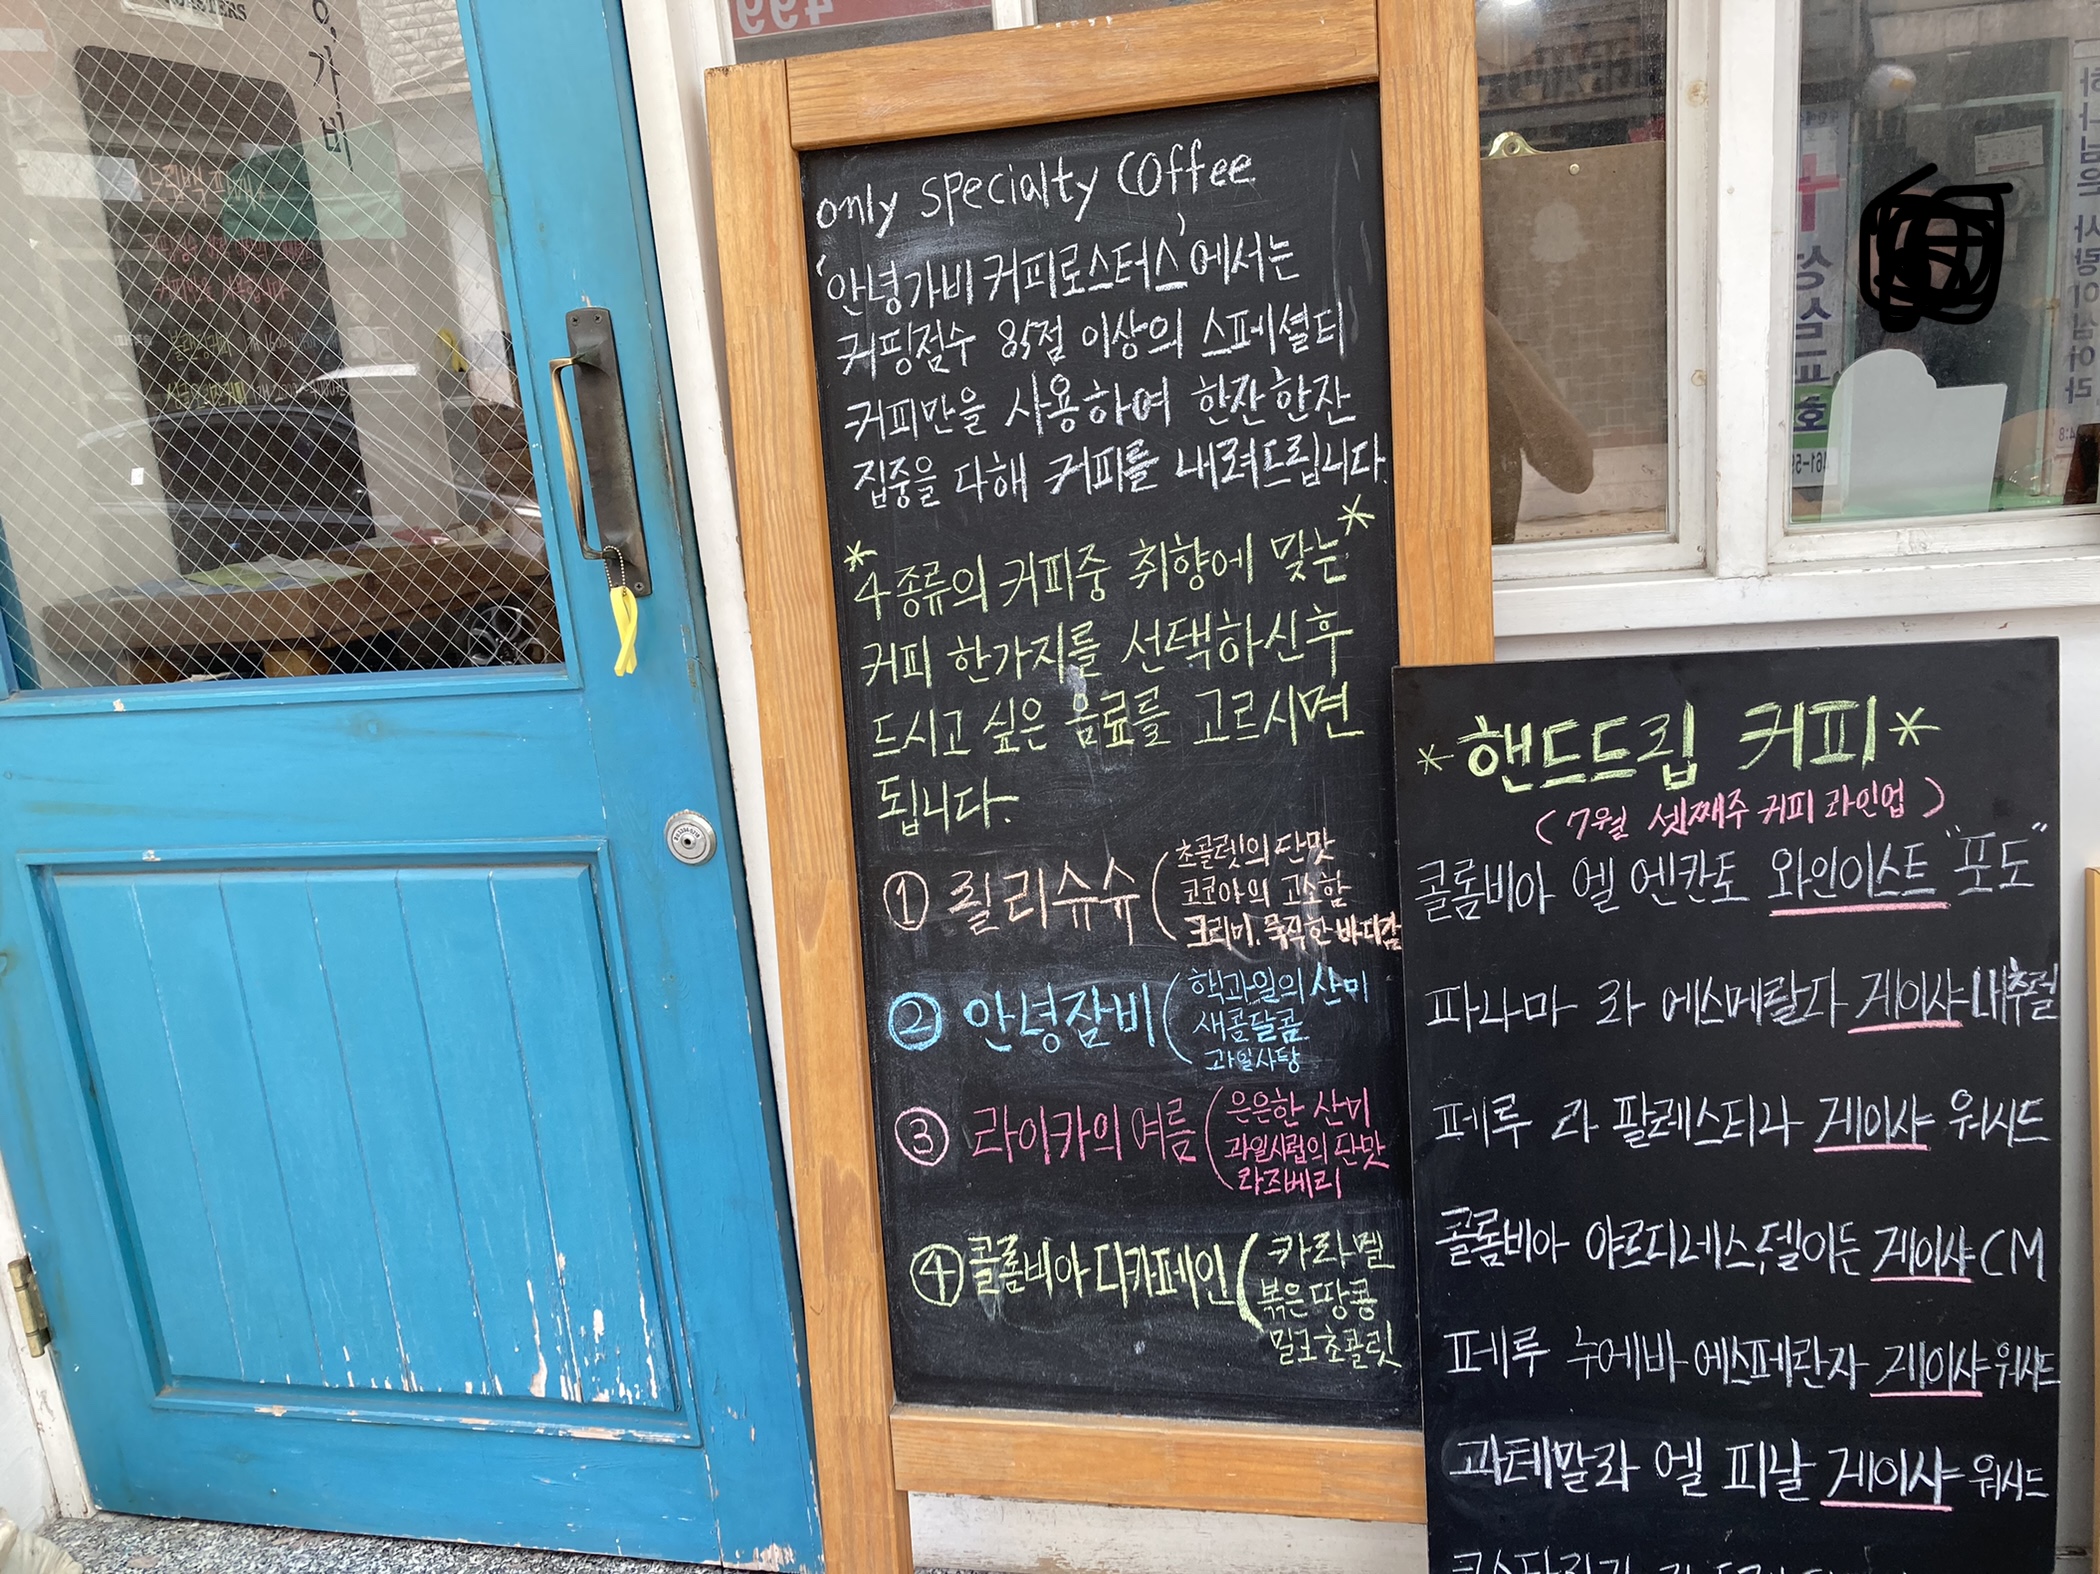 가비
only specialty coffee
'안녕가비 커피로스터스'에서는
커핑점수 85점 이상의 스페셜티
커피만을 사용하여 한잔한잔
집중을 다해 커피를 내려드립니다.
*4종류의 커피중 취향에 맞는*
커피 한가지를 선택하신후
드시고 싶은 음료를 고르시면
됩니다.
① 릴리슈슈 (초콜렛의 단맛
코코아의 고소함
크리미. 묵직한 바디감
② 안녕갈비 (핵과일의 산미
새콤달콤
과일사탕
③ 라이카의 여름 (은은한 산미
과일시럽의 단맛
라즈베리
④ 콜롬비아 디카페인 (카라멜
볶은땅콩
밀크초콜릿
*핸드드립 커피*
(7월 셋째주 커피 라인업)
콜롬비아 엘 엔칸토 와인이스트 "포도"
파나마 라 에스메랄다 게이샤 내추럴
페루 라 팔레스티나 게이샤 워시드
콜롬비아 야르디네스,델이든 게이샤 CM
페루 누에바 에스페란자 게이샤 워시드
과테말라 엘 피날 게이샤 워시드